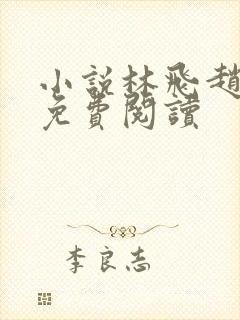 小說林飛趙
免費閱讀
李良志